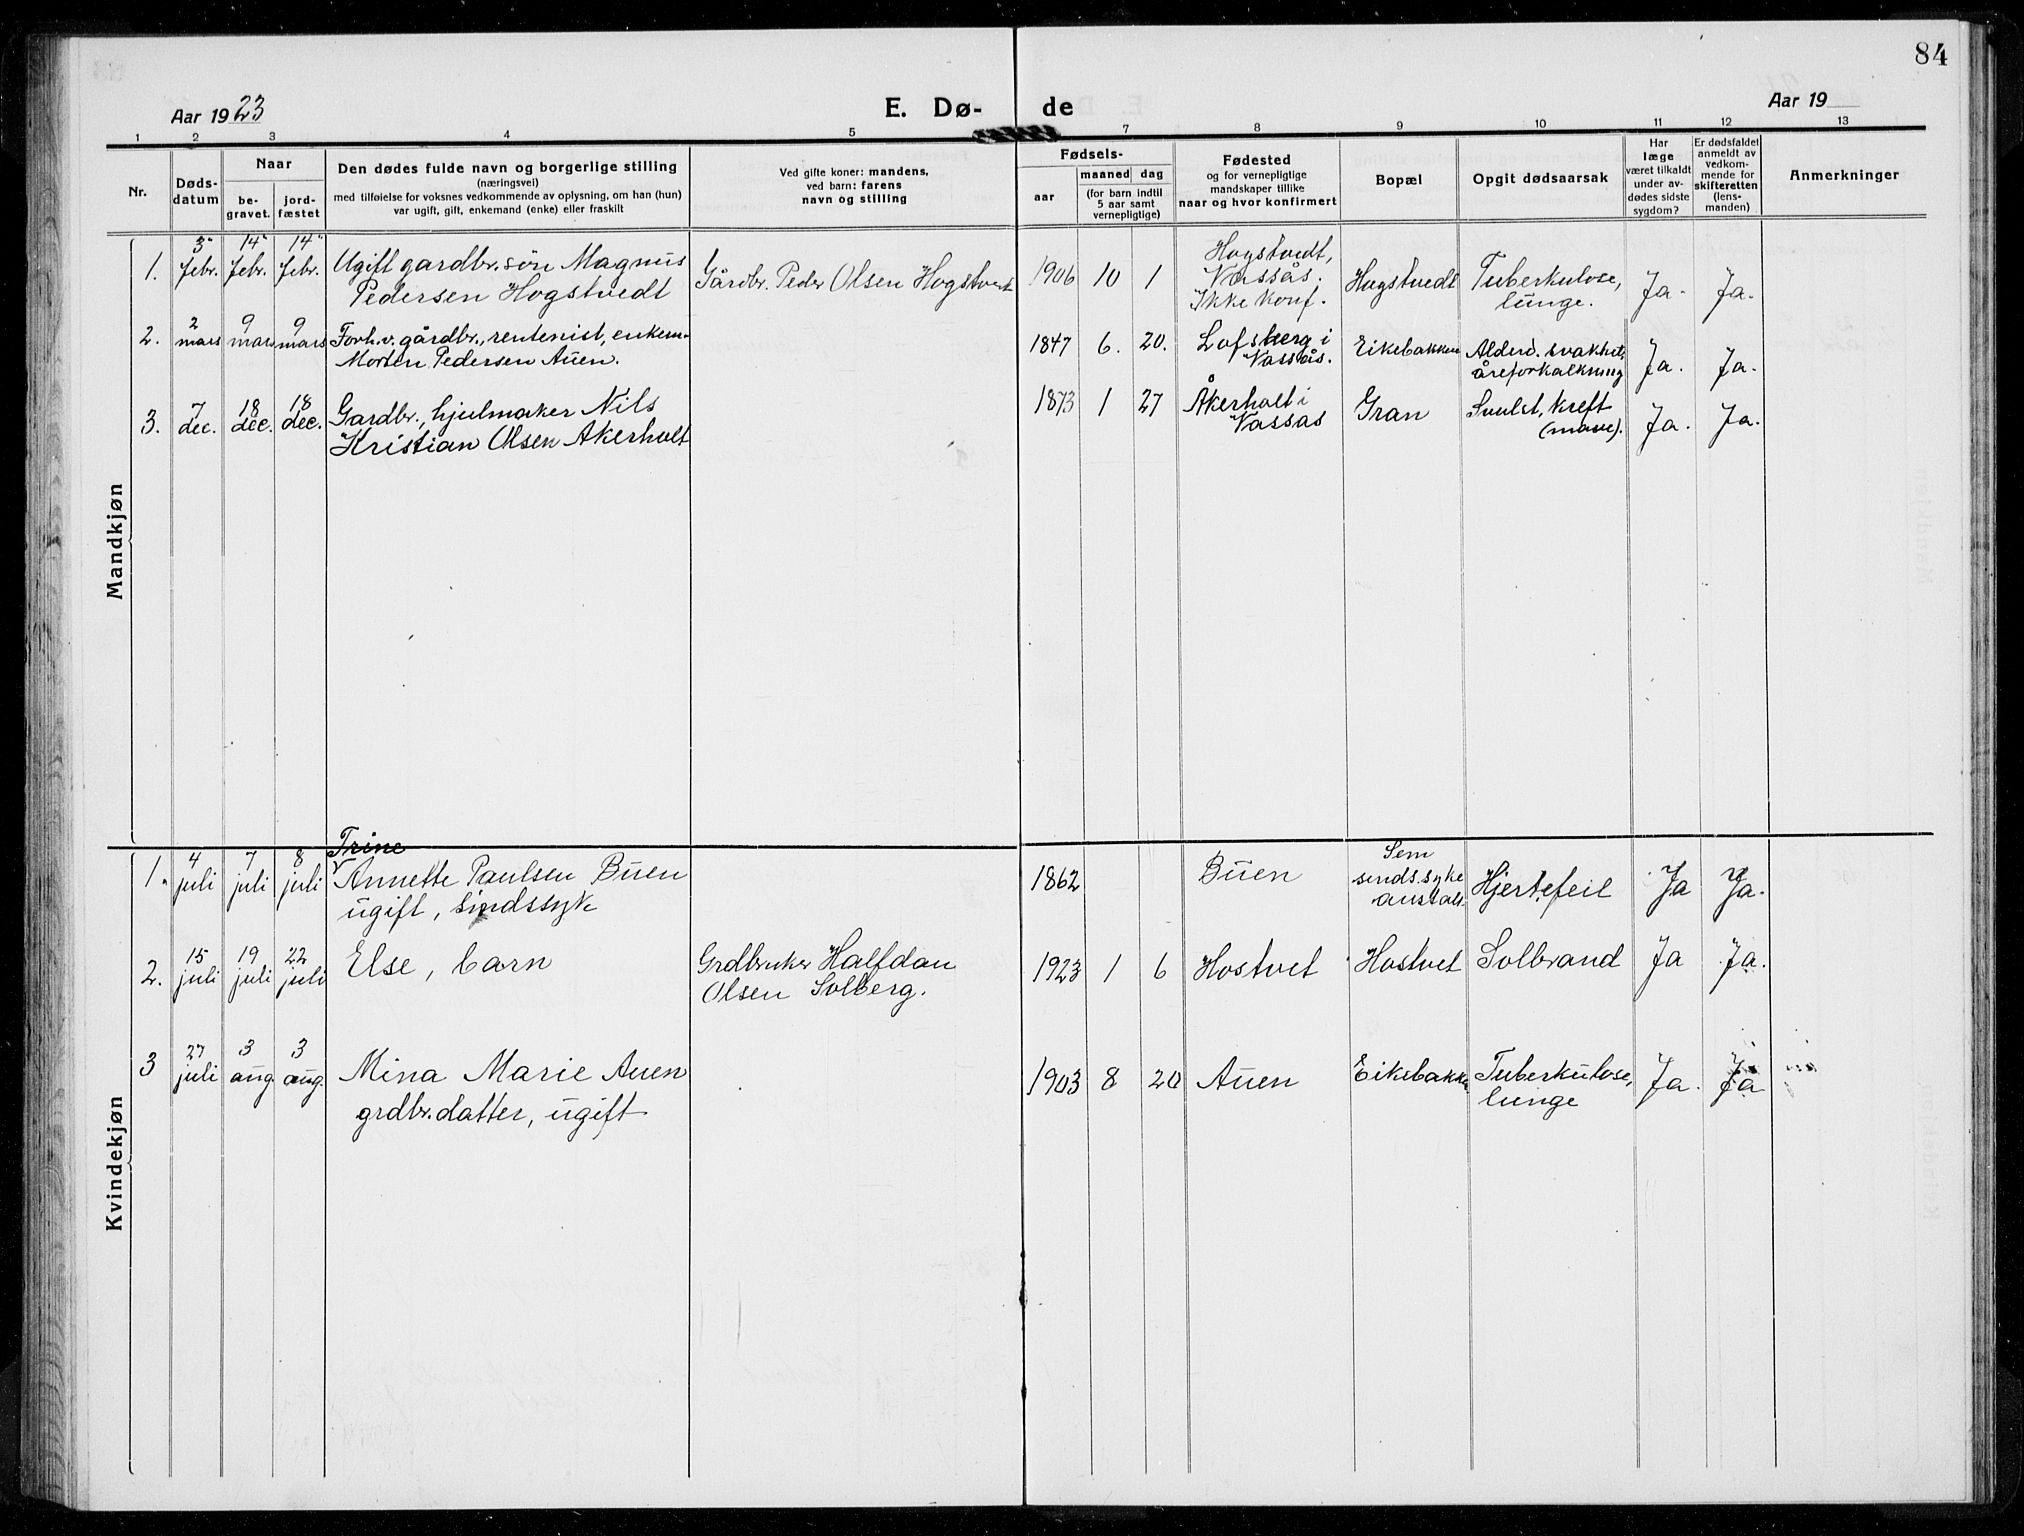 84
Aar 1923
E. Dø-
de
Aar 19
1 2 3 4 5 7 8 9 10 11 12 13
Nr.
Døds-
datum
Naar
be-
gravet.
jord-
fæstet
Den dødes fulde navn og borgerlige stilling
(næringsvei)
med tilføielse for voksnes vedkommende av oplysning, om han (hun)
var ugift, gift, enkemand (enke) eller fraskilt
Ved gifte koner: mandens,
ved barn: farens
navn og stilling
Fødsels-
aar
maaned dag
(for barn indtil
5 aar samt
vernepligtige)
Fødested
og for vernepligtige
mandskaper tillike
naar og hvor konfirmert
Bopæl
Opgit dødsaarsak
Har
læge
været tilkaldt
under av-
dødes sidste
sygdom?
Er dødsfaldet
anmeldt av
vedkom-
mende for
skifteretten
(lens-
manden)
Anmerkninger
Mandkjøn
1.
3
febr.
14
febr.
14
febr.
Ugift gardbr. søn Magnus
Pedersen Hogstvedt
Gårdbr. Peder Olsen Hogstvedt
1906 10 1
Hogstvedt,
Vassås.
Ikke konf.
Hogstvedt
Tuberkulose,
lunge.
Ja. Ja.
2.
2
mars
9
mars
9
mars
Forh.v. gårdbr., rentenist, enkem.
Morten Pedersen Auen.
1847 6. 20.
Lofsberg i
Vassås.
Eikebakken
Alderd. svakhet,
åreforkalkning
Ja. Ja.
3.
7
dec.
18
dec.
18
dec.
Gardbr., hjulmaker Nils
Kristian Olsen Åkerholt
1873 1 27
Åkerholt i
Vassas
Gran
Svulst, kreft
(mave).
Ja. Ja.
Kvindekjøn
1.
4
juli
7
juli
8
juli
Trine
Annette Paulsen Buen
ugift, sindssyk
1862
Buen
Sem
sinds.syke
anstalt.
Hjertefeil
Ja Ja.
2.
15
juli
19
juli
22
juli
Else, barn
Grdbruker Halfdan
Olsen Solberg.
1923 1 6
Hostvet
Hostvet
Solbrand
Ja Ja.
3
27
juli
3
aug.
3
aug.
Mina Marie Auen
grdbr. datter, ugift
1903 8 20
Auen
Eikebakken
Tuberkulose,
lunge
Ja. Ja